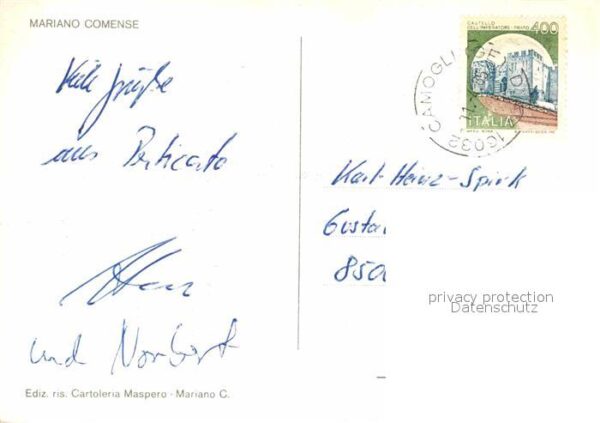 MARIANO COMENSE
CASTELLO
DELL'IMPERATORE - PRATO
400
ITALIA
16032 CAMOGLI
Viele Grüße
aus Perticato
und Norbert
Karl-Heinz-Spick
Gusta
850
privacy protection
Datenschutz
Ediz. ris. Cartoleria Maspero - Mariano C.